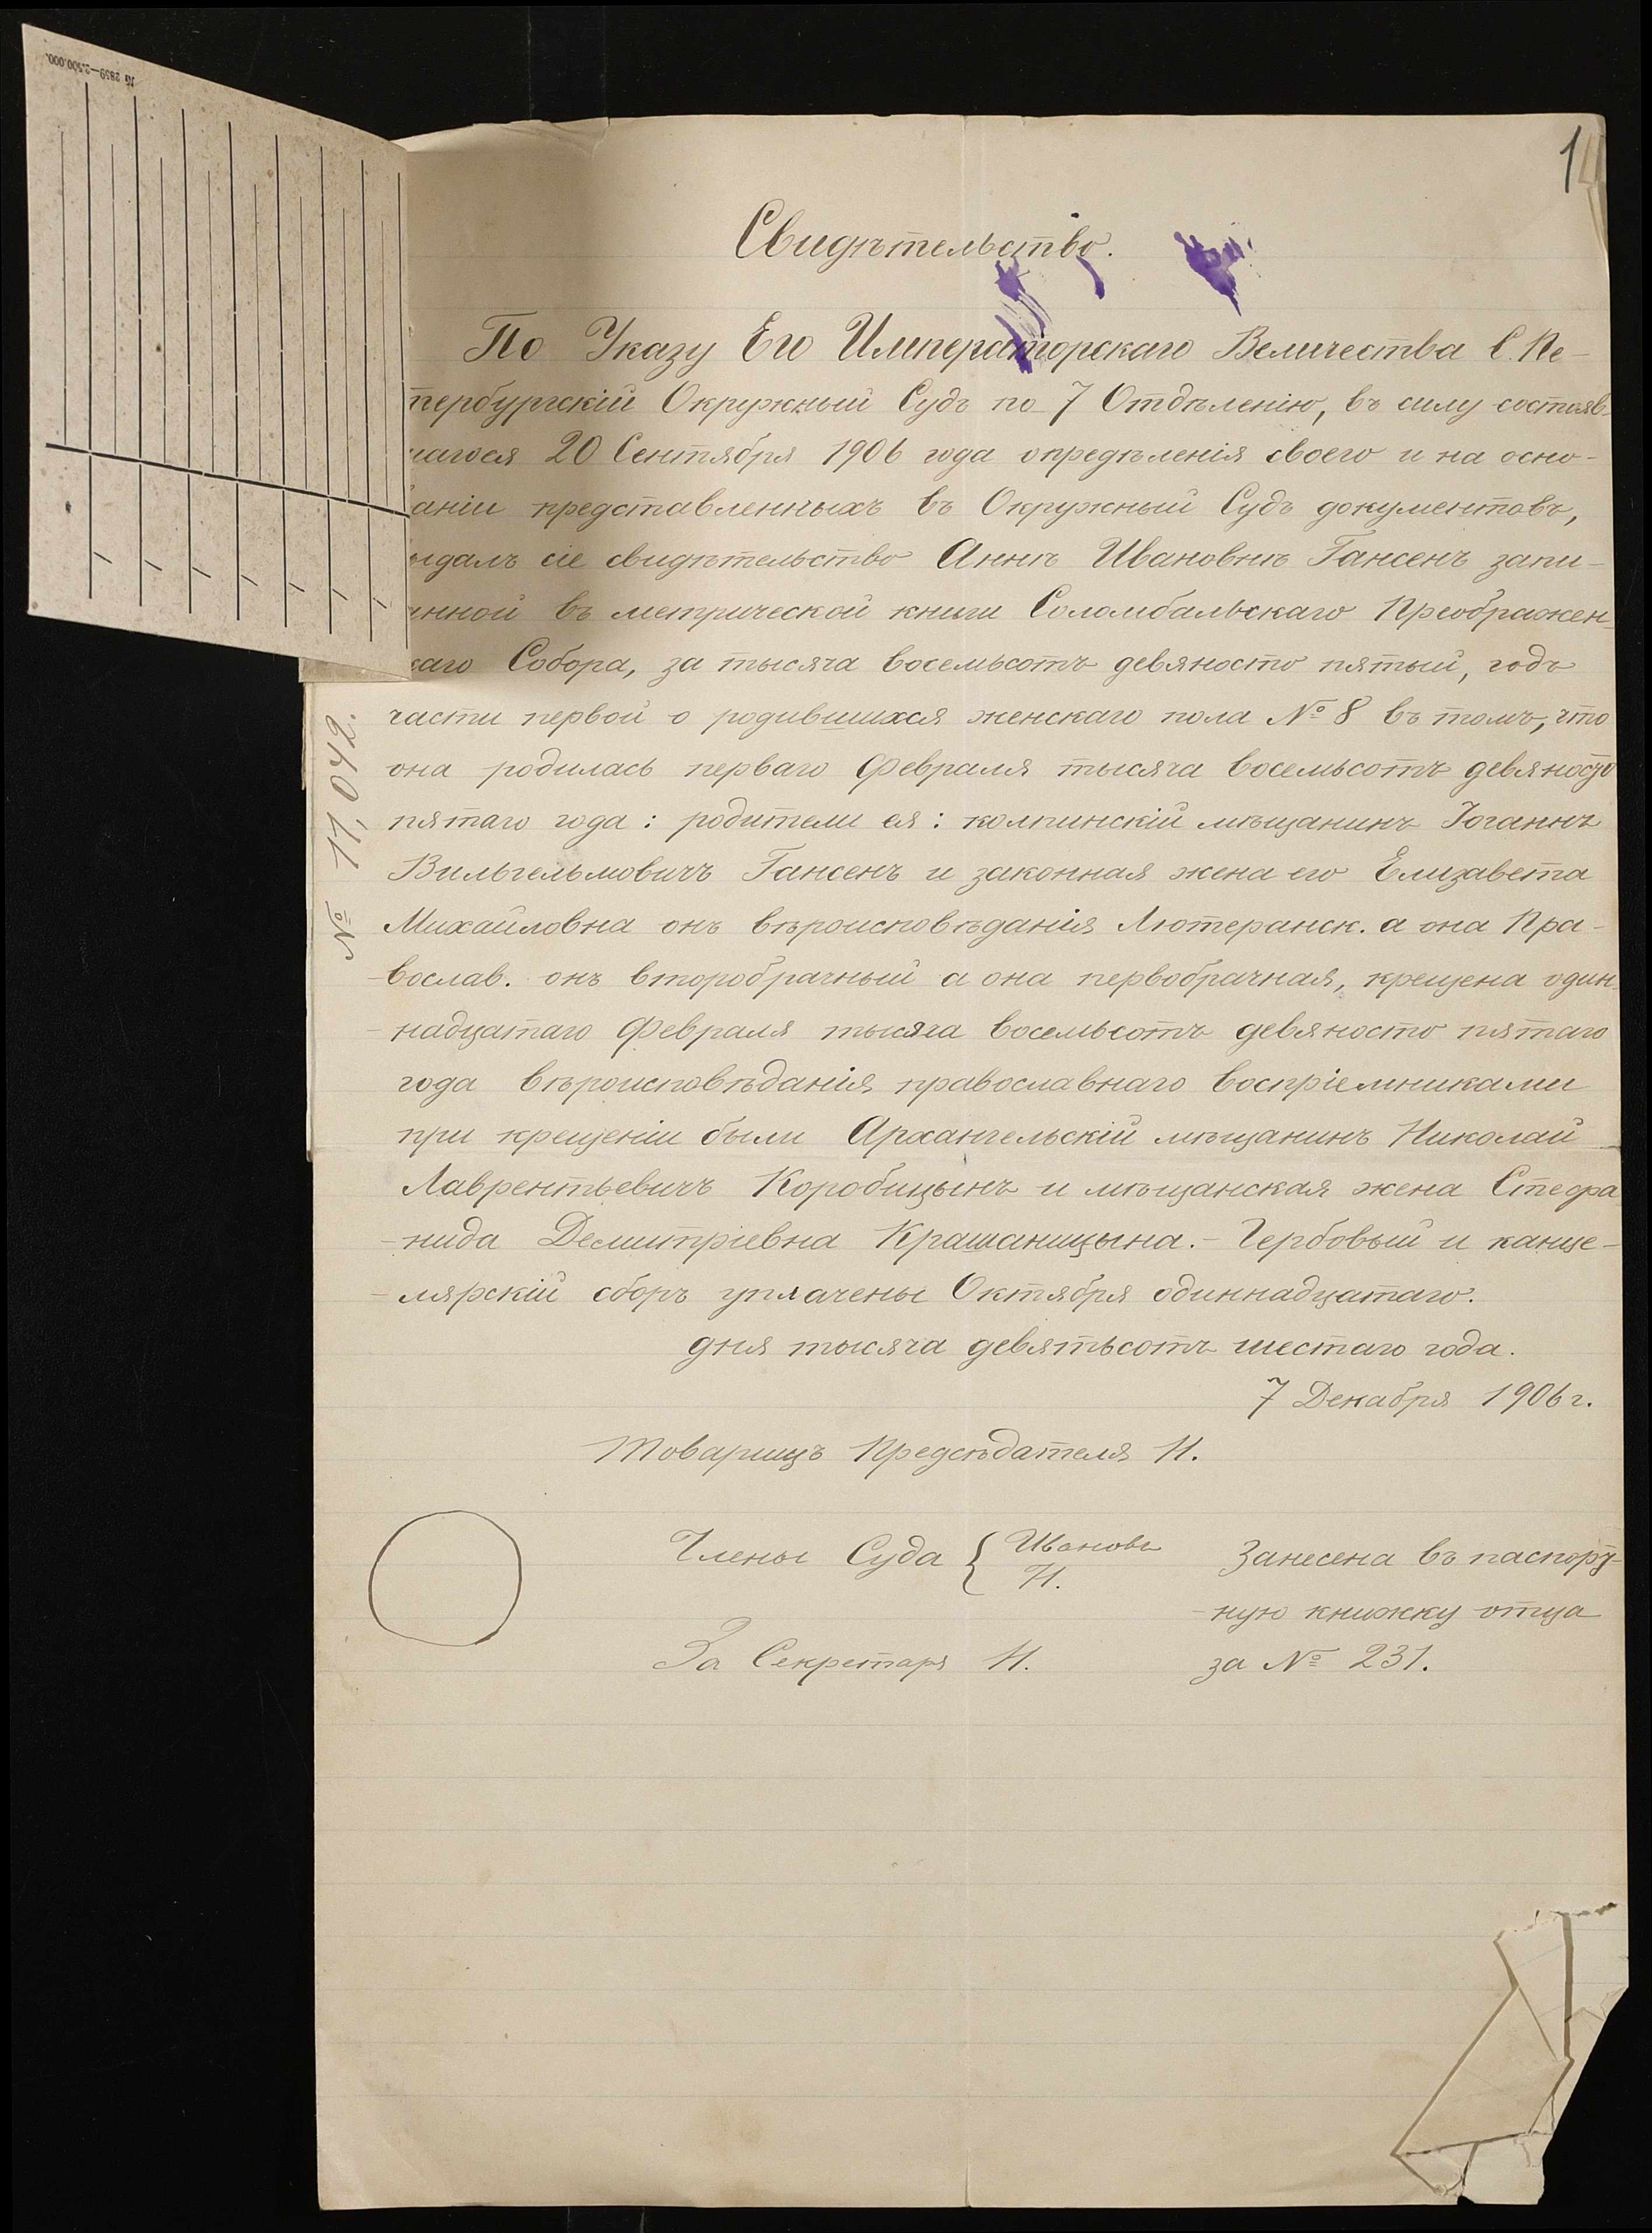 № 2859—2.500.000.
1
Свидѣтельство.
По Указу Его Императорскаго Величества С. Пе-
тербургскій Окружный Судъ по 7 Отдѣленію, въ силу состояв-
шагося 20 Сентября 1906 года опредѣленія своего и на осно-
ваніи представленныхъ въ Окружный Судъ документовъ,
ыдалъ сіе свидѣтельство Аннѣ Ивановнѣ Гансенъ запи-
нной въ метрической книги Соломбальскаго Преображен-
каго Собора, за тысяча восемьсотъ девяносто пятый, годъ
части первой о родившихся женскаго пола № 8 въ томъ, что
она родилась перваго Февраля тысяча восемьсотъ девяносто
пятаго года: родители ея: колпинскій мѣщанинъ Іоганнъ
Вильгельмовичъ Гансенъ и законная жена его Елизавета
Михайловна онъ вѣроисповѣданія Лютеранск. а она Пра-
-вослав. онъ второбрачный а она первобрачная, крещена один-
-надцатаго Февраля тысяча восемьсотъ девяносто пятаго
года вѣроисповѣданія православнаго воспріемниками
при крещеніи были Архангельскій мѣщанинъ Николай
Лаврентьевичъ Коробицынъ и мѣщанская жена Стефа
-нида Демитріевна Крашаницына.- Гербовый и канце-
-лярскій сборъ уплачены Октября одиннадцатаго.
дня тысяча девятьсотъ шестаго года.
7 Декабря 1906 г.
Товарищъ Предсѣдателя Н.
Члены Суда { Ивановъ
Н.
За Секретаря Н.
Занесена въ паспорт-
-ную книжку отца
за № 231.
№ 11,042.